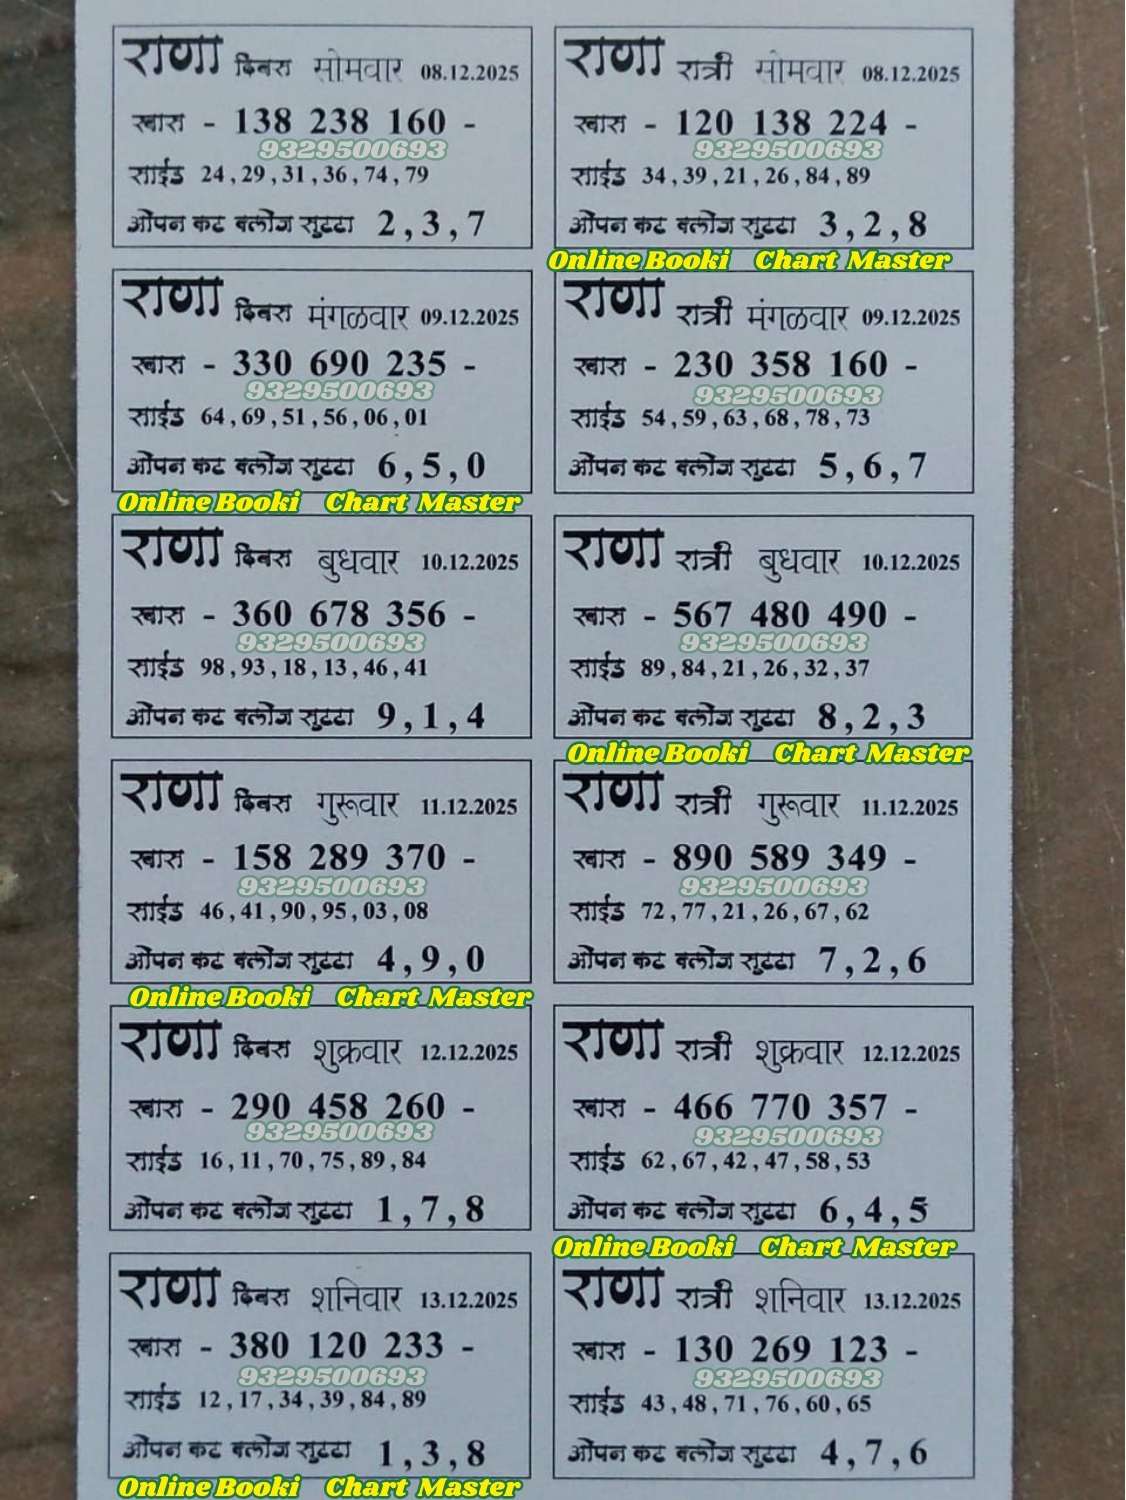 राणा दिवस सोमवार 08.12.2025
खास - 138 238 160 -
9329500693
साईड 24,29,31,36,74,79
ओपन कट क्लोज सुट्टा 2,3,7
राणा रात्री सोमवार 08.12.2025
खास - 120 138 224 -
9329500693
साईड 34,39,21,26,84,89
ओपन कट क्लोज सुट्टा 3,2,8
Online Booki Chart Master
राणा दिवस मंगळवार 09.12.2025
खास - 330 690 235 -
9329500693
साईड 64,69,51,56,06,01
ओपन कट क्लोज सुट्टा 6,5,0
Online Booki Chart Master
राणा रात्री मंगळवार 09.12.2025
खास - 230 358 160 -
9329500693
साईड 54,59,63,68,78,73
ओपन कट क्लोज सुट्टा 5,6,7
राणा दिवस बुधवार 10.12.2025
खास - 360 678 356 -
9329500693
साईड 98,93,18,13,46,41
ओपन कट क्लोज सुट्टा 9,1,4
राणा रात्री बुधवार 10.12.2025
खास - 567 480 490 -
9329500693
साईड 89,84,21,26,32,37
ओपन कट क्लोज सुट्टा 8,2,3
Online Booki Chart Master
राणा दिवस गुरूवार 11.12.2025
खास - 158 289 370 -
9329500693
साईड 46,41,90,95,03,08
ओपन कट क्लोज सुट्टा 4,9,0
Online Booki Chart Master
राणा रात्री गुरूवार 11.12.2025
खास - 890 589 349 -
9329500693
साईड 72,77,21,26,67,62
ओपन कट क्लोज सुट्टा 7,2,6
राणा दिवस शुक्रवार 12.12.2025
खास - 290 458 260 -
9329500693
साईड 16,11,70,75,89,84
ओपन कट क्लोज सुट्टा 1,7,8
राणा रात्री शुक्रवार 12.12.2025
खास - 466 770 357 -
9329500693
साईड 62,67,42,47,58,53
ओपन कट क्लोज सुट्टा 6,4,5
Online Booki Chart Master
राणा दिवस शनिवार 13.12.2025
खास - 380 120 233 -
9329500693
साईड 12,17,34,39,84,89
ओपन कट क्लोज सुट्टा 1,3,8
Online Booki Chart Master
राणा रात्री शनिवार 13.12.2025
खास - 130 269 123 -
9329500693
साईड 43,48,71,76,60,65
ओपन कट क्लोज सुट्टा 4,7,6